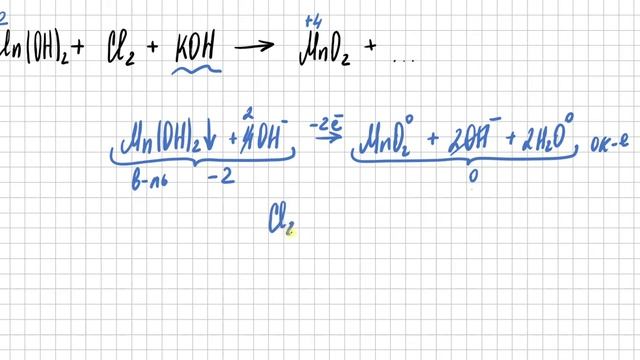 2 +4
Mn(OH)₂ + Cl₂ + KOH → MnO₂ + ...
Mn(OH)₂↓ + 2 4OH⁻ -2ē → MnO₂⁰ + 2OH⁻ + 2H₂O⁰, ок-е
в-ль -2 0
Cl₂